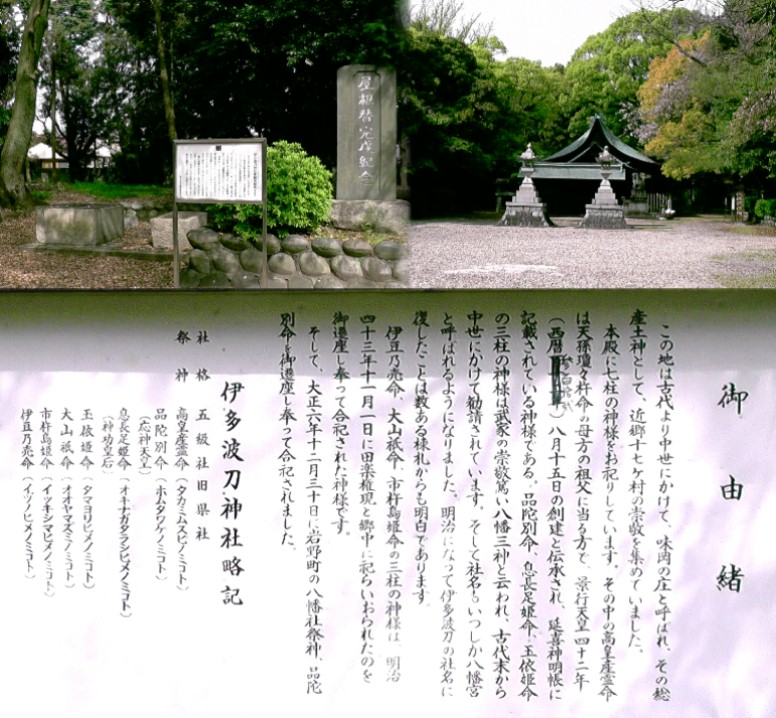 屋根替完成紀念
御由緒
この地は古代より中世にかけて、味岡の庄と呼ばれ、その総
産土神として、近郷十七ヶ村の崇敬を集めていました。
本殿に七柱の神様をお祀りしています。その中の高皇産霊命
は天孫瓊々杵命の母方の祖父に当る方で、景行天皇四十二年
(西暦 )八月十五日の創建と伝承され、延喜神明帳に
記載されている神様である。品陀別命、息長足姫命、玉依姫命
の三柱の神様は武家の崇敬篤い八幡三神と云われ、古代末から
中世にかけて勧請されています。そして社名もいつしか八幡宮
と呼ばれるようになりました。明治になって伊多波刀の社名に
復したことは数ある棟札からも明白であります。
伊豆乃売命、大山祇命、市杵島姫命の三柱の神様は、明治
四十三年十一月一日に田楽権現と郷中に祀らいおられたのを
御遷座し奉って合祀された神様です。
そして、大正六年十二月三十日に岩野町の八幡社祭神、品陀
別命を御遷座し奉って合祀されました。
伊多波刀神社略記
社格 五級社旧県社
祭神 高皇産霊命(タカミムスビノミコト)
品陀別命(ホムダワケノミコト)
(応神天皇)
息長足姫命(オキナガタラシヒメノミコト)
(神功皇后)
玉依姫命(タマヨリヒメノミコト)
大山祇命(オオヤマズミノミコト)
市杵島姫命(イツキシマヒメノミコト)
伊豆乃売命(イヅノヒメノミコト)